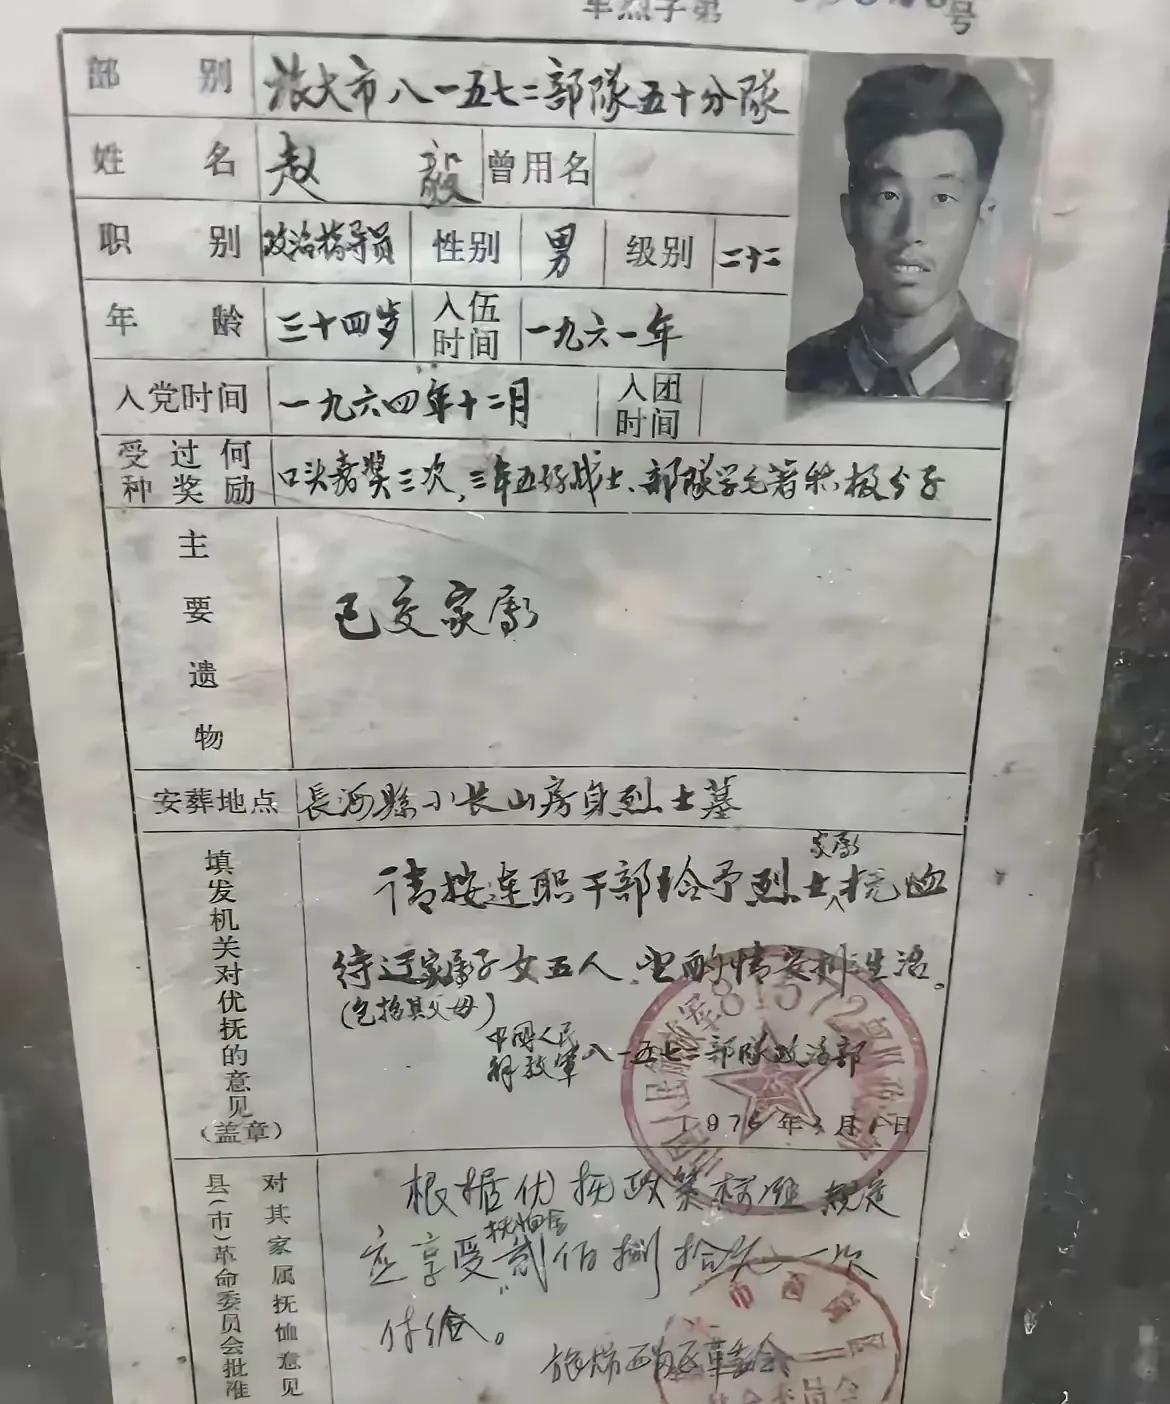 军烈字第 号
部别 旅大市八一五七二部队五十分队
姓名 赵毅 曾用名
职别 政治指导员 性别 男 级别 二十二
年龄 三十四岁 入伍时间 一九六一年
入党时间 一九六四年十二月 入团时间
受过何种奖励 口头嘉奖三次,三年五好战士、部队学毛著积极分子
主要遗物 已交家属
安葬地点 長海縣小长山房身烈士墓
填发机关对优抚的意见(盖章)
请按连职干部给予烈士家属抚恤
待辽家属子女五人,望酌情安排生活。
(包括其父母)
中国人民解放军八一五七二部队政治部
1976年3月 日
县(市)革命委员会批准对其家属抚恤意见
根据优抚政策标准规定
应享受抚恤金贰佰捌拾元一次
付给。